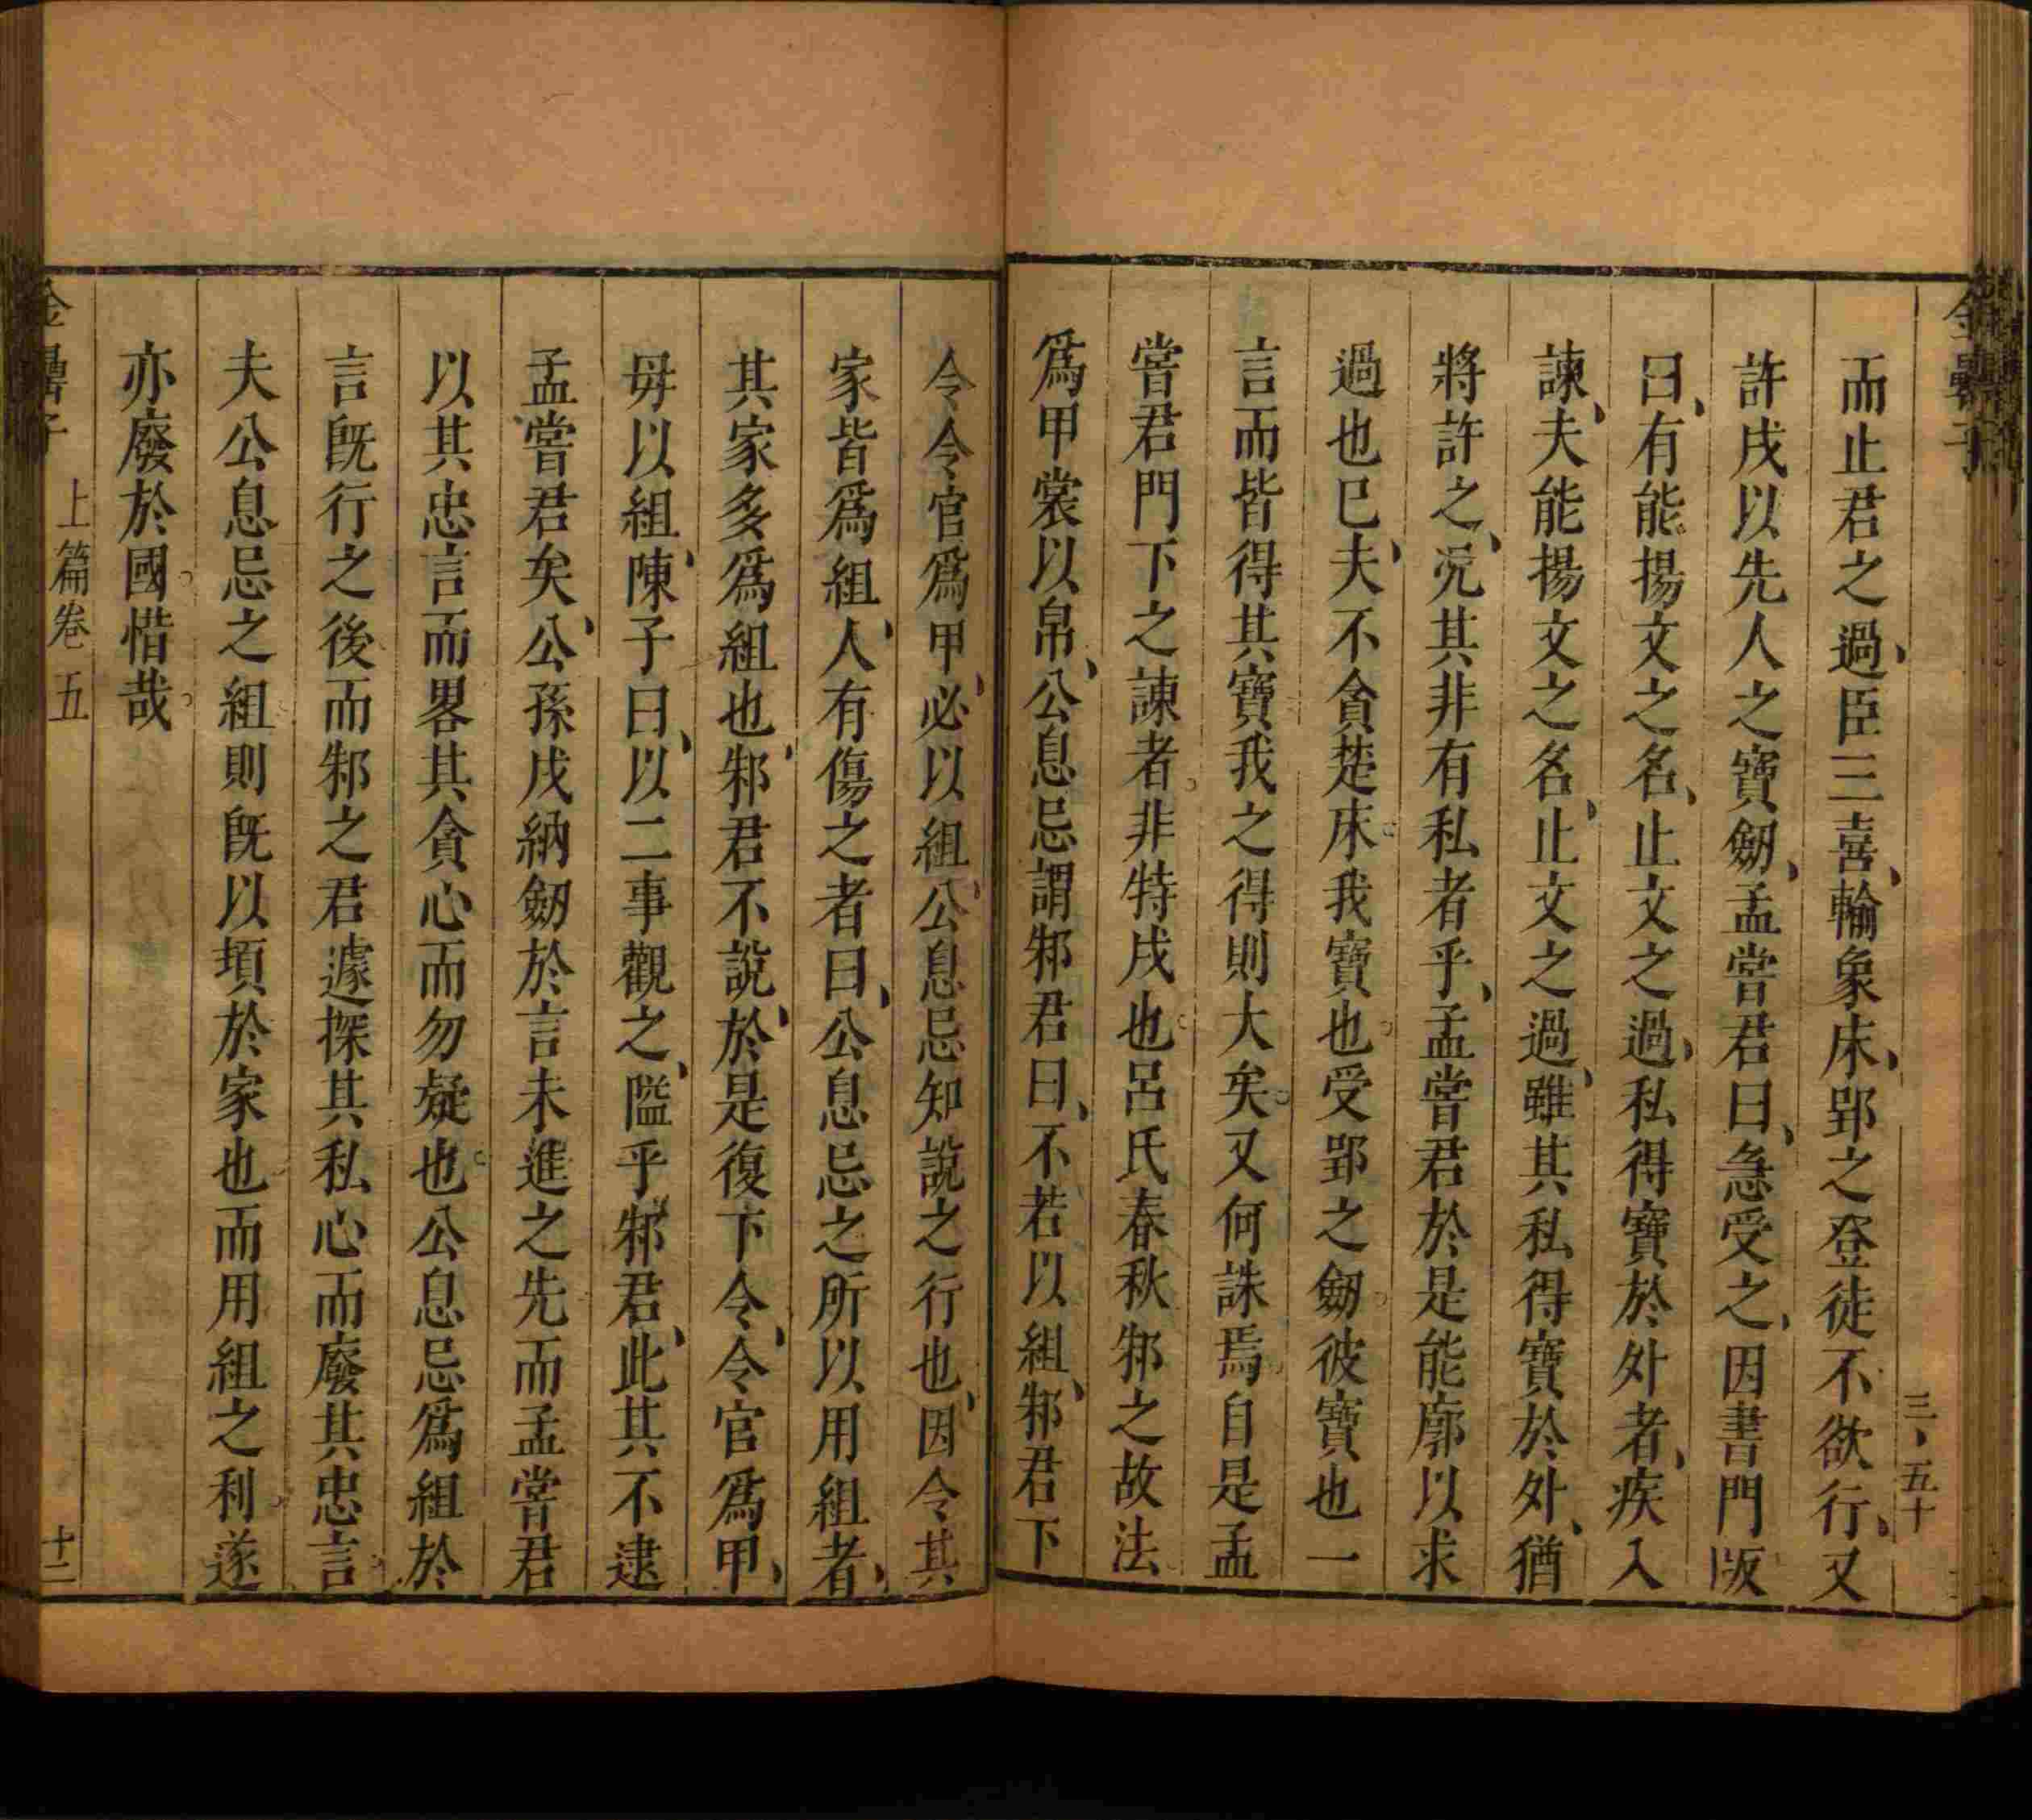 而止君之過臣三喜輸象床郢之登徒不欲行又
許戌以先人之寶劒孟甞君曰急受之因書門版
曰有能揚文之名止文之過私得寶於外者疾入
諫夫能揚文之名止文之過雖其私得寶於外猶
將許之况其非有私者乎孟甞君於是能廓以求
過也已夫不貪楚床我寶也受郢之劒彼寶也一
言而皆得其寶我之得則大矣又何誅焉自是孟
甞君門下之諫者非特戌也呂氏春秋邾之故法
爲甲裳以帛公息忌謂邾君曰不若以組邾君下
令令官爲甲必以組公息忌知說之行也因令其
家皆爲組人有傷之者曰公息忌之所以用組者
其家多爲組也邾君不說於是復下令令官爲甲
毋以組陳子曰以二事觀之隘乎邾君此其不逮
孟甞君矣公孫戌納劒於言未進之先而孟甞君
以其忠言而畧其貪心而勿疑也公息忌爲組於
言旣行之後而邾之君遽探其私心而廢其忠言
夫公息忌之組則旣以塤於家也而用組之利遂
亦廢於國惜哉
上篇卷五
十二
三、五十